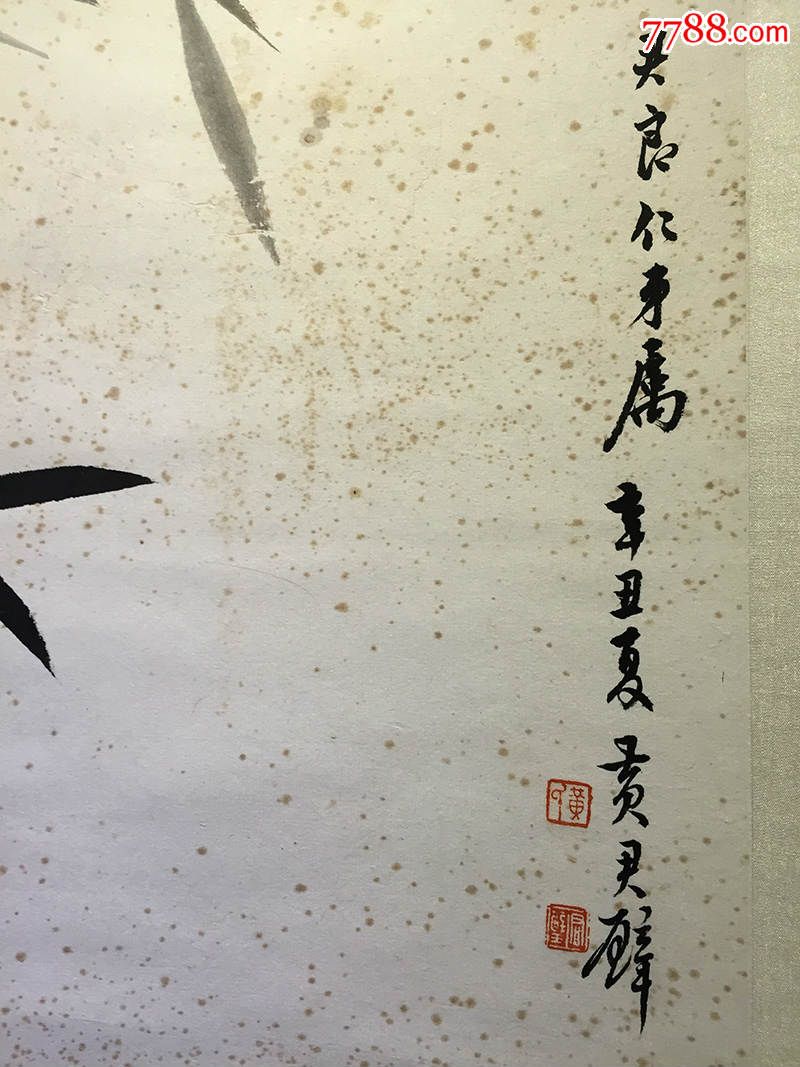 7788.com
良仁弟属 辛丑夏 黄君璧
黄
君璧